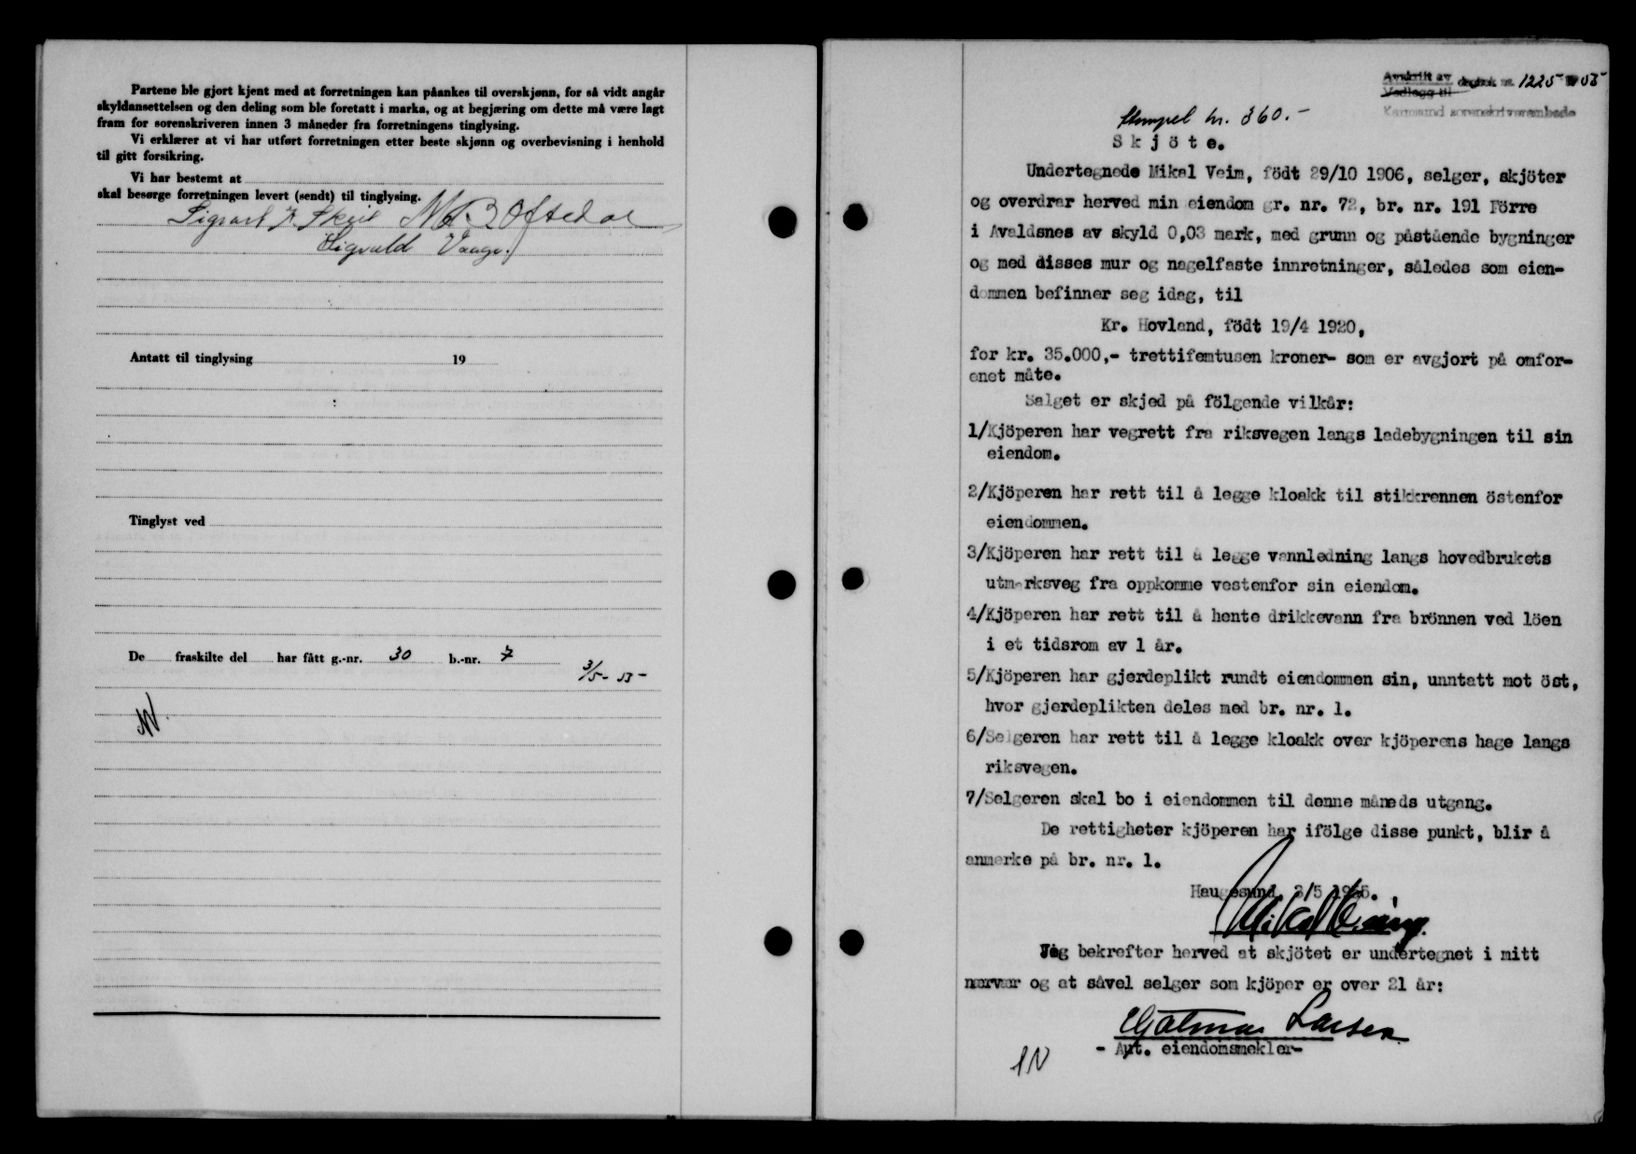 Partene ble gjort kjent med at forretningen kan påankes til overskjønn, for så vidt angår
skyldansettelsen og den deling som ble foretatt i marka, og at begjæring om dette må være lagt
fram for sorenskriveren innen 3 måneder fra forretningens tinglysing.
Vi erklærer at vi har utført forretningen etter beste skjønn og overbevisning i henhold
til gitt forsikring.
Vi har bestemt at
skal besørge forretningen levert (sendt) til tinglysing.
Oftedal
Sigvald Vaage.
Antatt til tinglysing 19
Tinglyst ved
De fraskilte del har fått g.-nr. 30 b.-nr. 7
3/5- 55-
Avskrift av
Vedlegg til dagbok nr. 1225 55
Karmsund sorenskriverembede
Stempel kr. 360.-
Skjöte.
Undertegnede Mikal Veim, födt 29/10 1906, selger, skjöter
og overdrar herved min eiendom gr. nr. 72, br. nr. 191 Förre
i Avaldsnes av skyld 0,03 mark, med grunn og påstående bygninger
og med disses mur og nagelfaste innretninger, således som eien-
dommen befinner seg idag, til
Kr. Hovland, födt 19/4 1920,
for kr. 35.000,- trettifemtusen kroner- som er avgjort på omfor-
enet måte.
Salget er skjed på fölgende vilkår:
1/Kjöperen har vegrett fra riksvegen langs ladebygningen til sin
eiendom.
2/Kjöperen har rett til å legge kloakk til stikkrennen östenfor
eiendommen.
3/Kjöperen har rett til å legge vannledning langs hovedbrukets
utmarksveg fra oppkomme vestenfor sin eiendom.
4/Kjöperen har rett til å hente drikkevann fra brönnen ved löen
i et tidsrom av 1 år.
5/Kjöperen har gjerdeplikt rundt eiendommen sin, unntatt mot öst,
hvor gjerdeplikten deles med br. nr. 1.
6/Selgeren har rett til å legge kloakk over kjöperens hage langs
riksvegen.
7/Selgeren skal bo i eiendommen til denne måneds utgang.
De rettigheter kjöperen har ifölge disse punkt, blir å
anmerke på br. nr. 1.
Haugesund, 3/5 1955.
Jeg bekrefter herved at skjötet er undertegnet i mitt
nærvær og at såvel selger som kjöper er over 21 år:
Hjalmar Larsen
- Aut. eiendomsmekler-